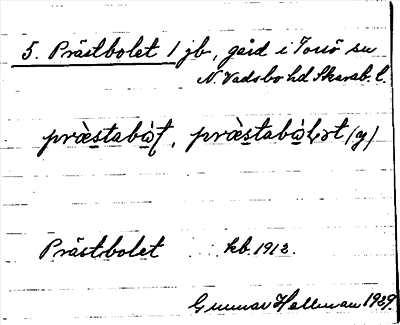 5. Prästbolet 1 jb, gård i Torsö sn
N. Vadsbo hd Skarab. l.
præ̀stabò̱t, præ̀stabò̱lət (y)
Prästbolet kb. 1912.
Gunnar Hallman 1929.